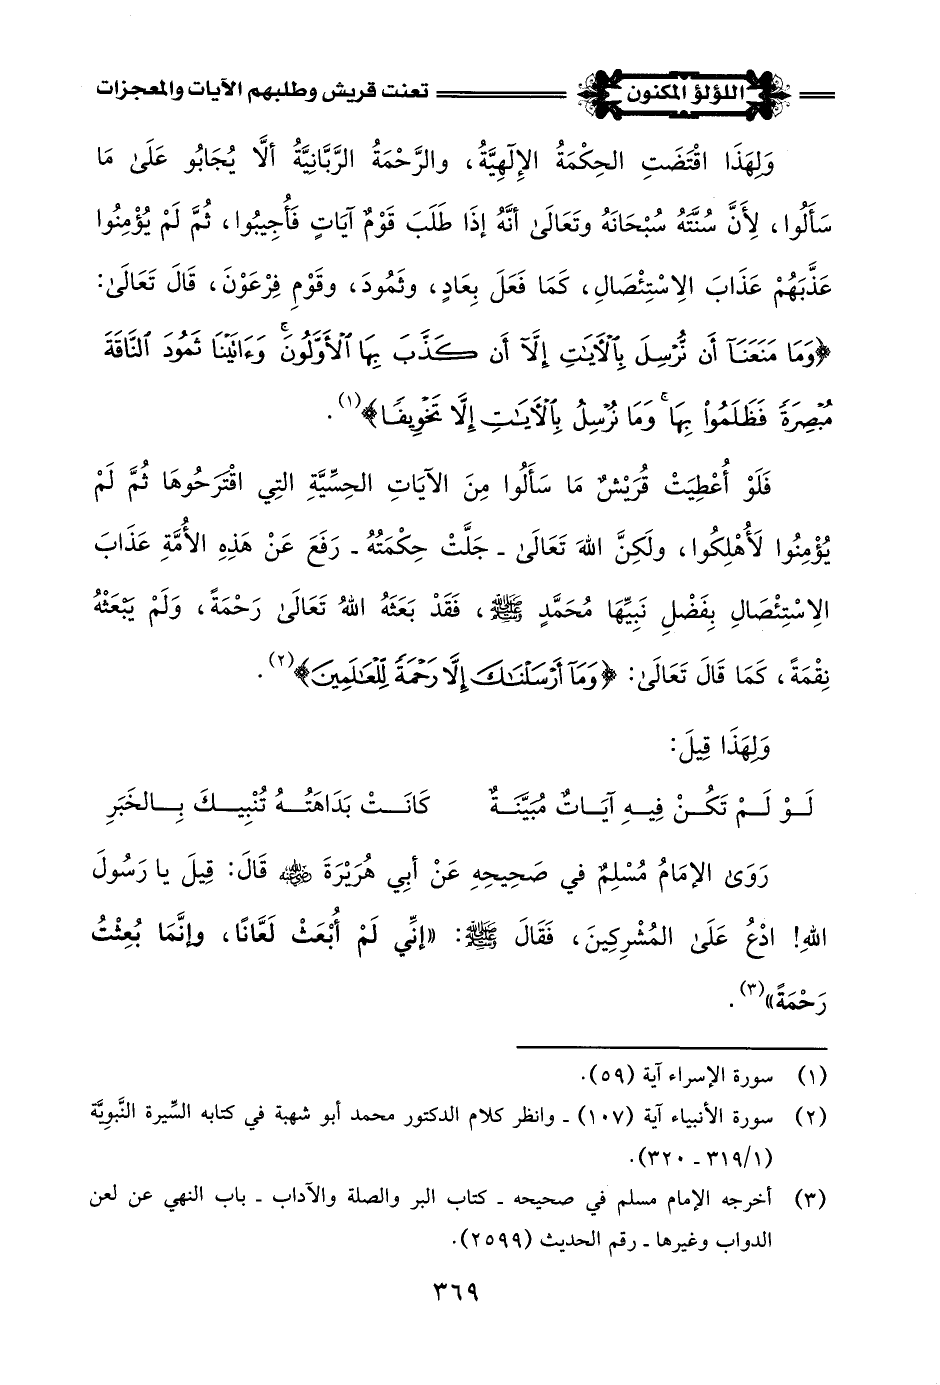 اللؤلؤ المكنون تعنت قريش وطلبهم الآيات والمعجزات
وَلِهَذَا اقْتَضَتِ الحِكْمَةُ الإِلَهِيَّةُ، والرَّحْمَةُ الرَّبَّانِيَّةُ ألَّا يُجَابُو عَلَىٰ مَا
سَأَلُوا، لِأَنَّ سُنَّتَهُ سُبْحَانَهُ وتَعَالَىٰ أنَّهُ إذَا طَلَبَ قَوْمٌ آيَاتٍ فَأُجِيبُوا، ثُمَّ لَمْ يُؤْمِنُوا
عَذَّبَهُمْ عَذَابَ الِاسْتِئْصَالِ، كَمَا فَعَلَ بِعَادٍ، وثَمُودَ، وقَوْمِ فِرْعَوْنَ، قَالَ تَعَالَىٰ:
﴿وَمَا مَنَعَنَآ أَن نُّرۡسِلَ بِٱلۡأٓيَٰتِ إِلَّآ أَن كَذَّبَ بِهَا ٱلۡأَوَّلُونَۚ وَءَاتَيۡنَا ثَمُودَ ٱلنَّاقَةَ
مُبۡصِرَةٗ فَظَلَمُواْ بِهَاۚ وَمَا نُرۡسِلُ بِٱلۡأٓيَٰتِ إِلَّا تَخۡوِيفٗا﴾(١).
فَلَوْ أُعْطِيَتْ قُرَيْشٌ مَا سَأَلُوا مِنَ الآيَاتِ الحِسِّيَّةِ التِي اقْتَرَحُوهَا ثُمَّ لَمْ
يُؤْمِنُوا لَأُهْلِكُوا، ولَكِنَّ اللهَ تَعَالَىٰ ـ جَلَّتْ حِكْمَتُهُ ـ رَفَعَ عَنْ هَذِهِ الأُمَّةِ عَذَابَ
الِاسْتِئْصَالِ بِفَضْلِ نَبِيِّهَا مُحَمَّدٍ ﷺ، فَقَدْ بَعَثَهُ اللهُ تَعَالَىٰ رَحْمَةً، وَلَمْ يَبْعَثْهُ
نِقْمَةً، كَمَا قَالَ تَعَالَىٰ: ﴿وَمَآ أَرۡسَلۡنَٰكَ إِلَّا رَحۡمَةٗ لِّلۡعَٰلَمِينَ﴾(٢).
وَلِهَذَا قِيلَ:
لَوْ لَمْ تَكُنْ فِيهِ آيَاتٌ مُبَيَّنَةٌ كَانَتْ بَدَاهَتُهُ تُنْبِيكَ بِالخَبَرِ
رَوَىٰ الإمَامُ مُسْلِمٌ في صَحِيحِهِ عَنْ أبِي هُرَيْرَةَ رضي الله عنه قَالَ: قِيلَ يا رَسُولَ
اللهِ! ادْعُ عَلَىٰ المُشْرِكِينَ، فَقَالَ ﷺ: «إنِّي لَمْ أُبْعَثْ لَعَّانًا، وإنَّمَا بُعِثْتُ
رَحْمَةً»(٣).
(١) سورة الإسراء آية (٥٩).
(٢) سورة الأنبياء آية (١٠٧) ـ وانظر كلام الدكتور محمد أبو شهبة في كتابه السِّيرة النَّبويَّة
(٣١٩/١ ـ ٣٢٠).
(٣) أخرجه الإمام مسلم في صحيحه ـ كتاب البر والصلة والآداب ـ باب النهي عن لعن
الدواب وغيرها ـ رقم الحديث (٢٥٩٩).
٣٦٩